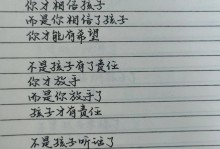 你才相信孩子
而是你相信了孩子
你才能有希望
不是孩子有了责任
你才放手
而是你放手了
孩子才有责任
不是孩子听话了